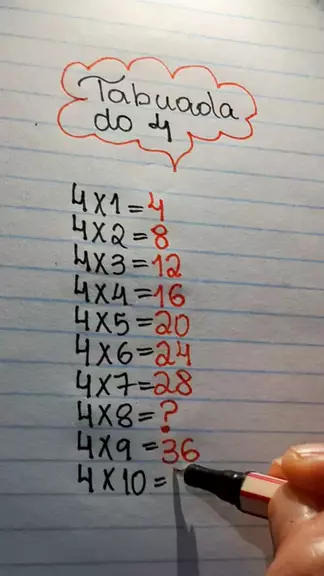 Tabuada
do 4
4X1=4
4X2=8
4X3=12
4X4=16
4X5=20
4X6=24
4X7=28
4X8=?
4X9=36
4X10=